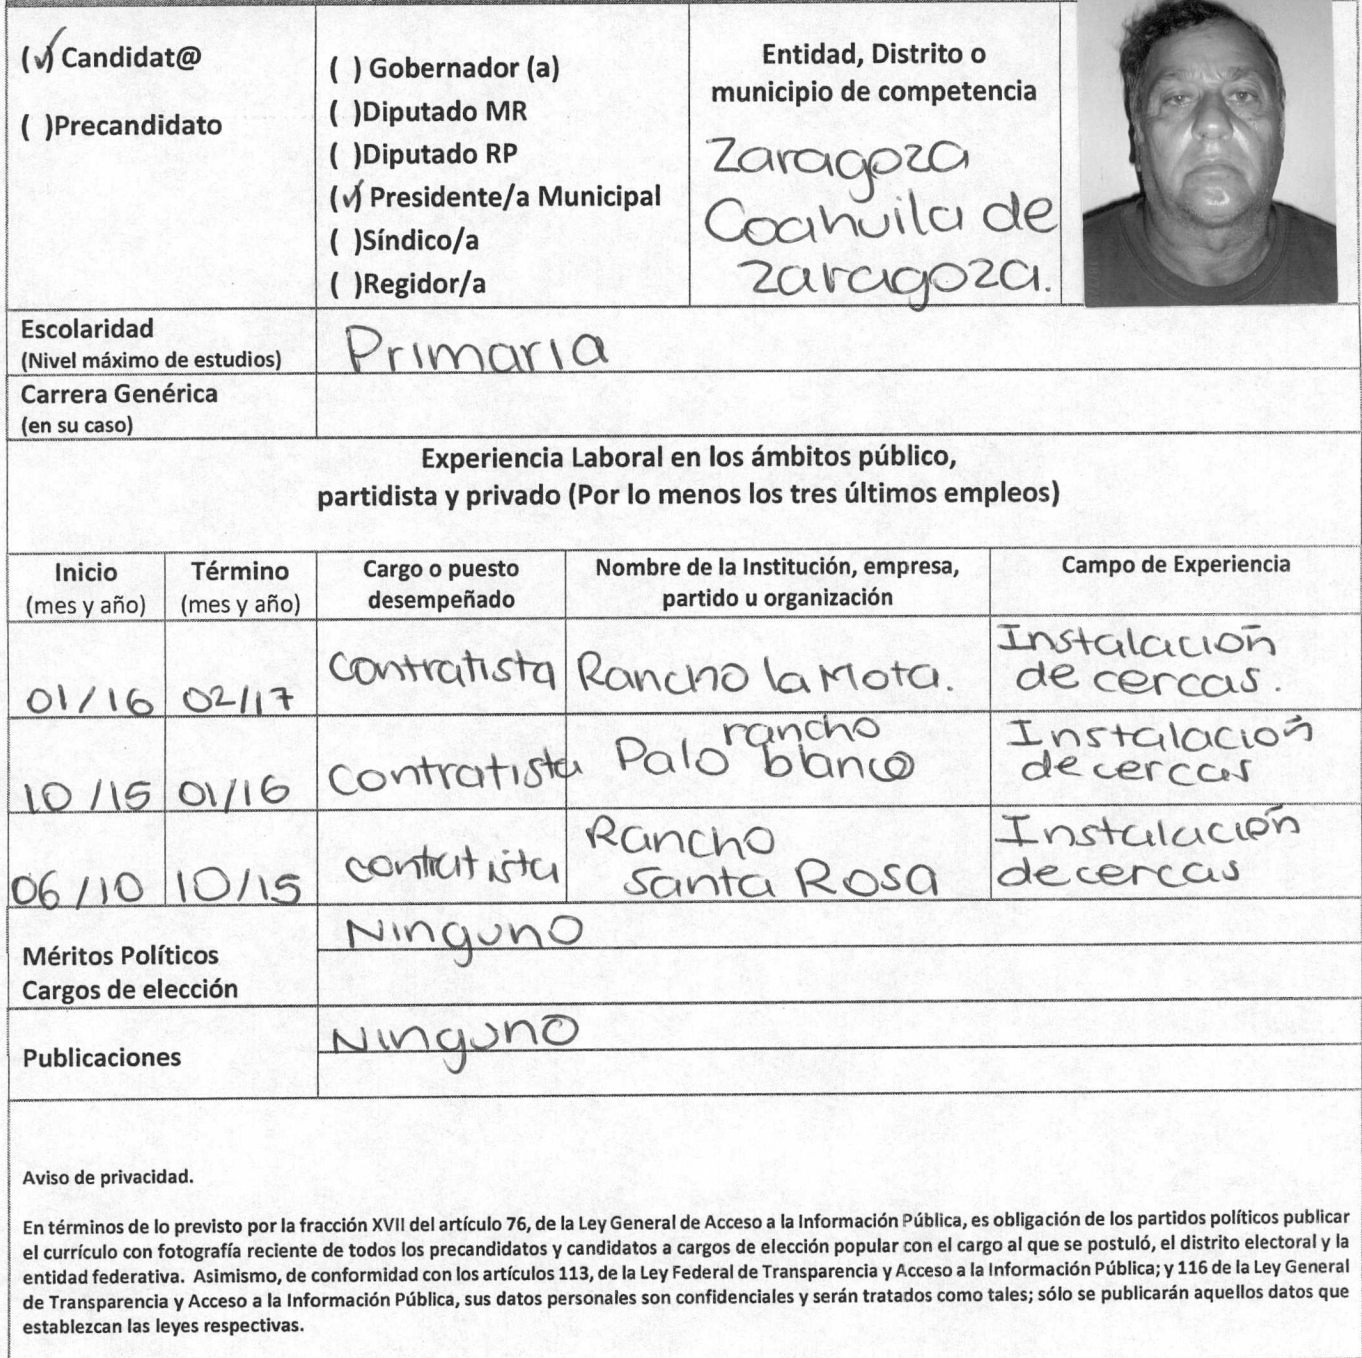 (✓) Candidat@
( )Precandidato
( ) Gobernador (a)
( )Diputado MR
( )Diputado RP
(✓) Presidente/a Municipal
( )Síndico/a
( )Regidor/a
Entidad, Distrito o
municipio de competencia
Zaragoza
Coahuila de
zaragoza.
Escolaridad
(Nivel máximo de estudios)
Primaria
Carrera Genérica
(en su caso)
Experiencia Laboral en los ámbitos público,
partidista y privado (Por lo menos los tres últimos empleos)
Inicio
(mes y año)
Término
(mes y año)
Cargo o puesto
desempeñado
Nombre de la Institución, empresa,
partido u organización
Campo de Experiencia
01/16
02/17
contratista
Rancho la Mota.
Instalación
de cercas.
10/15
01/16
contratista
rancho
Palo blanco
Instalación
de cercas
06/10
10/15
contratista
Rancho
Santa Rosa
Instalación
de cercas
Méritos Políticos
Cargos de elección
Ninguno
Publicaciones
Ninguno
Aviso de privacidad.
En términos de lo previsto por la fracción XVII del artículo 76, de la Ley General de Acceso a la Información Pública, es obligación de los partidos políticos publicar
el currículo con fotografía reciente de todos los precandidatos y candidatos a cargos de elección popular con el cargo al que se postuló, el distrito electoral y la
entidad federativa. Asimismo, de conformidad con los artículos 113, de la Ley Federal de Transparencia y Acceso a la Información Pública; y 116 de la Ley General
de Transparencia y Acceso a la Información Pública, sus datos personales son confidenciales y serán tratados como tales; sólo se publicarán aquellos datos que
establezcan las leyes respectivas.